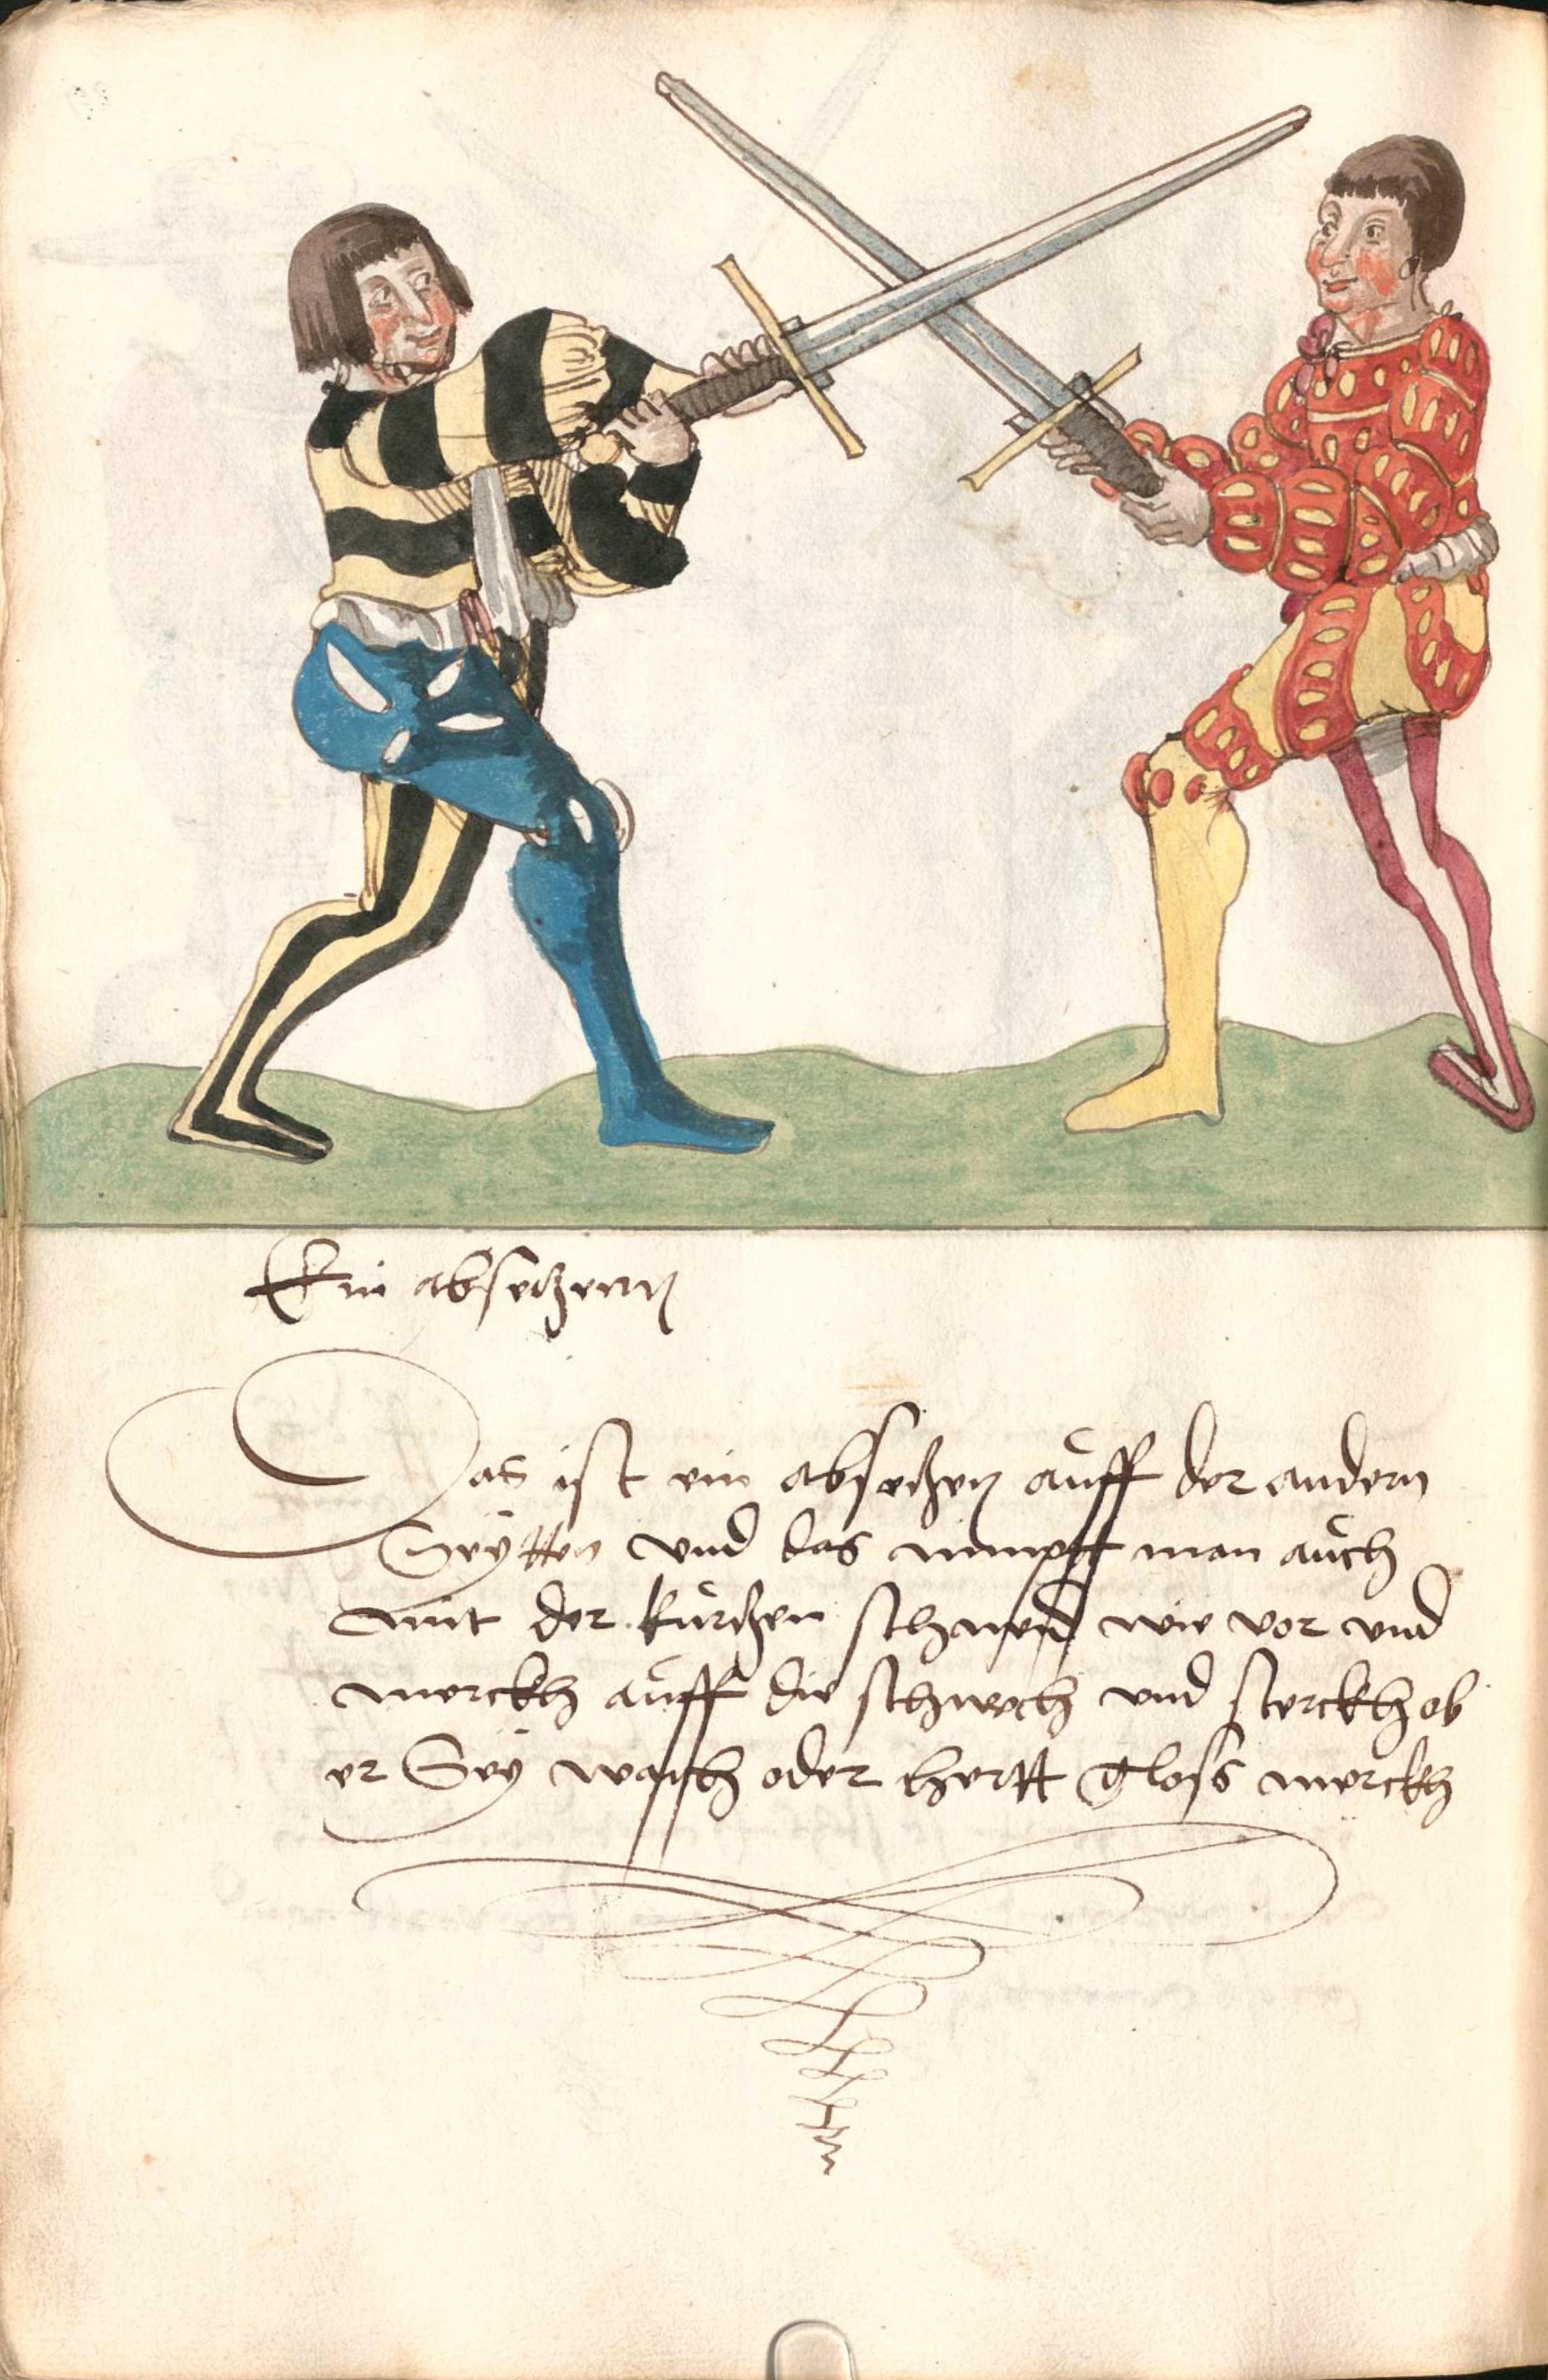 Ein abseczenn
Das ist ein abseczen auff der andern
Seytten vnd das nimptt man auch
mit der kurczen schneid wie vor vnd
merckh auff die schwech vnd sterckh ob
er Sey waich oder hertt Gloss merckh